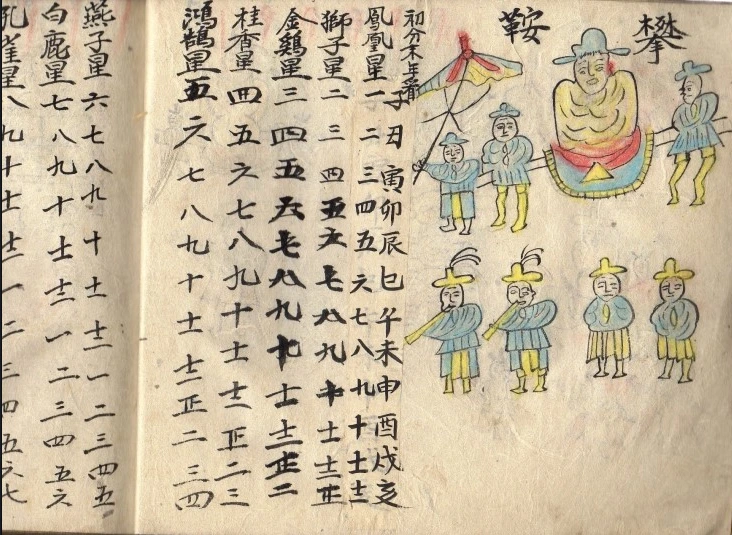 攀鞍
初分末年
子丑寅卯辰巳午未申酉戌亥
鳳凰星一二三四五六七八九十十一十二
獅子星二三四五六七八九十十一十二正
金鷄星三四五六七八九十十一十二正二
桂香星四五六七八九十十一十二正二三
鴻鵠星五六七八九十十一十二正二三四
燕子星六七八九十十一十二一二三四五
白鹿星七八九十十一十二一二三四五六
孔雀星八九十十一十二一二三四五六七